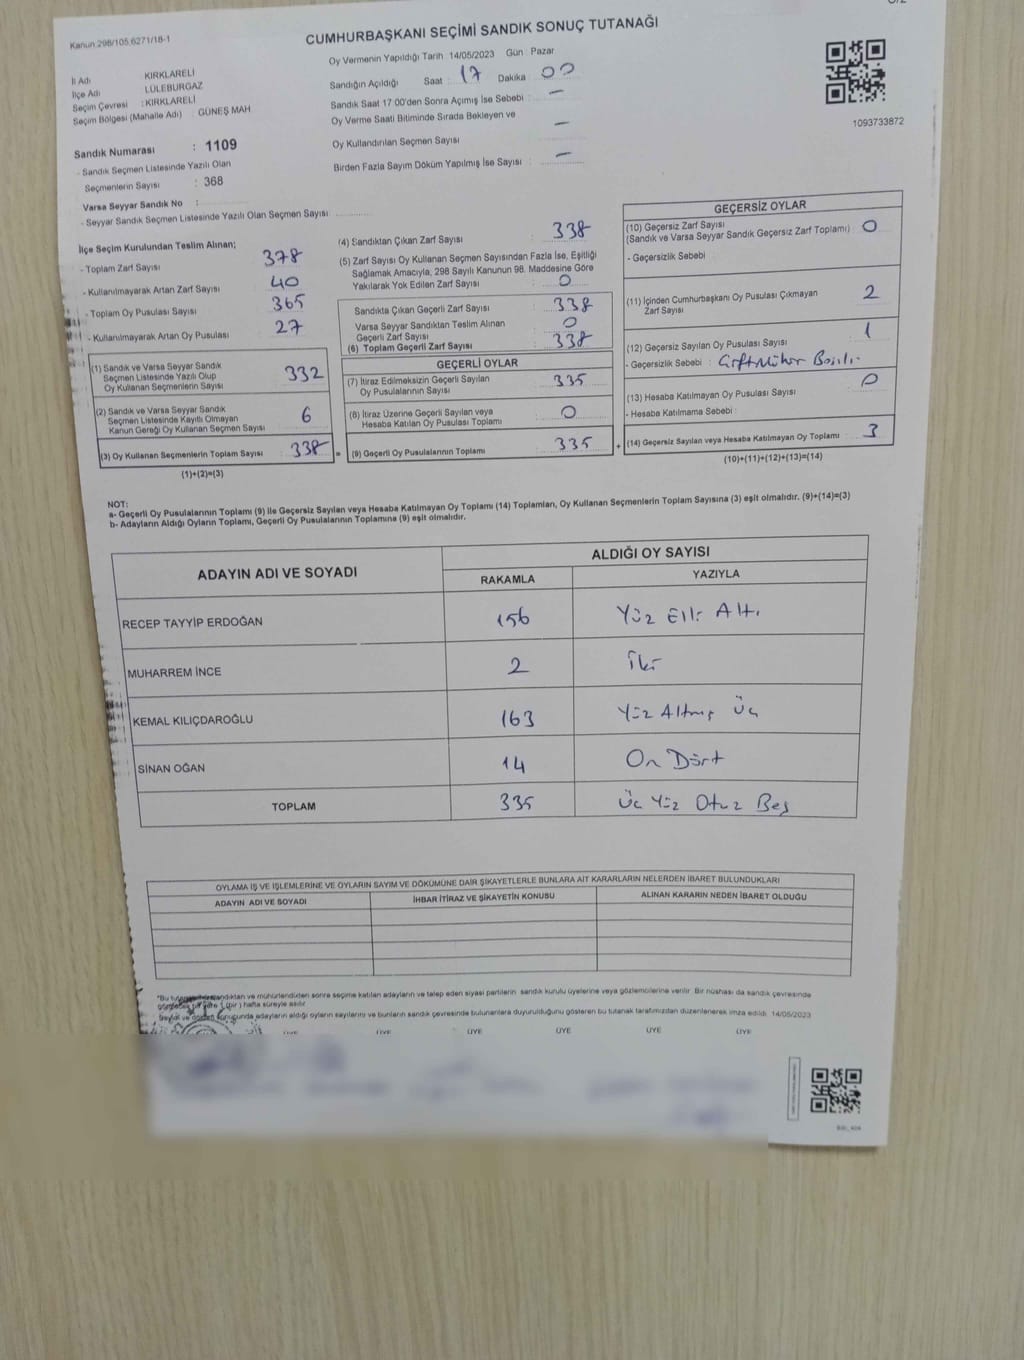 Kanun.298/105,6271/18-1
CUMHURBAŞKANI SEÇİMİ SANDIK SONUÇ TUTANAĞI
İl Adı KIRKLARELİ
İlçe Adı LÜLEBURGAZ
Seçim Çevresi : KIRKLARELİ
Seçim Bölgesi (Mahalle Adı) : GÜNEŞ MAH
Sandık Numarası : 1109
- Sandık Seçmen Listesinde Yazılı Olan
Seçmenlerin Sayısı : 368
Varsa Seyyar Sandık No :
- Seyyar Sandık Seçmen Listesinde Yazılı Olan Seçmen Sayısı
Oy Vermenin Yapıldığı Tarih 14/05/2023 Gün Pazar
Sandığın Açıldığı Saat : 17 Dakika 00
Sandık Saat 17 00'den Sonra Açımış İse Sebebi : —
Oy Verme Saati Bitiminde Sırada Bekleyen ve
Oy Kullandırılan Seçmen Sayısı : —
Birden Fazla Sayım Döküm Yapılmış İse Sayısı : —
1093733872
İlçe Seçim Kurulundan Teslim Alınan;
- Toplam Zarf Sayısı : 378
- Kullanılmayarak Artan Zarf Sayısı : 40
- Toplam Oy Pusulası Sayısı : 365
- Kullanılmayarak Artan Oy Pusulası : 27
(1) Sandık ve Varsa Seyyar Sandık
Seçmen Listesinde Yazılı Olup
Oy Kullanan Seçmenlerin Sayısı : 332
(2) Sandık ve Varsa Seyyar Sandık
Seçmen Listesinde Kayıtlı Olmayan
Kanun Gereği Oy Kullanan Seçmen Sayısı : 6
(3) Oy Kullanan Seçmenlerin Toplam Sayısı : 338
(1)+(2)=(3)
(4) Sandıktan Çıkan Zarf Sayısı : 338
(5) Zarf Sayısı Oy Kullanan Seçmen Sayısından Fazla İse, Eşitliği
Sağlamak Amacıyla, 298 Sayılı Kanunun 98. Maddesine Göre
Yakılarak Yok Edilen Zarf Sayısı : 0
Sandıkta Çıkan Geçerli Zarf Sayısı : 338
Varsa Seyyar Sandıktan Teslim Alınan
Geçerli Zarf Sayısı : 0
(6) Toplam Geçerli Zarf Sayısı : 338
GEÇERLİ OYLAR
(7) İtiraz Edilmeksizin Geçerli Sayılan
Oy Pusulalarının Sayısı : 335
(8) İtiraz Üzerine Geçerli Sayılan veya
Hesaba Katılan Oy Pusulası Toplamı : 0
= (9) Geçerli Oy Pusulalarının Toplamı : 335 +
GEÇERSİZ OYLAR
(10) Geçersiz Zarf Sayısı
(Sandık ve Varsa Seyyar Sandık Geçersiz Zarf Toplamı) : 0
- Geçersizlik Sebebi :
(11) İçinden Cumhurbaşkanı Oy Pusulası Çıkmayan
Zarf Sayısı : 2
(12) Geçersiz Sayılan Oy Pusulası Sayısı : 1
- Geçersizlik Sebebi : Çift Mühür Basılı
(13) Hesaba Katılmayan Oy Pusulası Sayısı : 0
- Hesaba Katılmama Sebebi :
(14) Geçersiz Sayılan veya Hesaba Katılmayan Oy Toplamı : 3
(10)+(11)+(12)+(13)=(14)
NOT:
a- Geçerli Oy Pusulalarının Toplamı (9) ile Geçersiz Sayılan veya Hesaba Katılmayan Oy Toplamı (14) Toplamları, Oy Kullanan Seçmenlerin Toplam Sayısına (3) eşit olmalıdır. (9)+(14)=(3)
b- Adayların Aldığı Oyların Toplamı, Geçerli Oy Pusulalarının Toplamına (9) eşit olmalıdır.
ADAYIN ADI VE SOYADI ALDIĞI OY SAYISI
RAKAMLA YAZIYLA
RECEP TAYYİP ERDOĞAN 156 Yüz Elli Altı
MUHARREM İNCE 2 İki
KEMAL KILIÇDAROĞLU 163 Yüz Altmış Üç
SİNAN OĞAN 14 On Dört
TOPLAM 335 Üç Yüz Otuz Beş
OYLAMA İŞ VE İŞLEMLERİNE VE OYLARIN SAYIM VE DÖKÜMÜNE DAİR ŞİKAYETLERLE BUNLARA AİT KARARLARIN NELERDEN İBARET BULUNDUKLARI
ADAYIN ADI VE SOYADI İHBAR İTİRAZ VE ŞİKAYETİN KONUSU ALINAN KARARIN NEDEN İBARET OLDUĞU
ve mühürlendikten sonra seçime katılan adayların ve talep eden siyasi partilerin sandık kurulu üyelerine veya gözlemcilerine verilir. Bir nüshası da sandık çevresinde
(bir) hafta süreyle asılır.
sonucunda adayların aldığı oyların sayılarını ve bunların sandık çevresinde bulunanlara duyurulduğunu gösteren bu tutanak tarafımızdan düzenlenerek imza edildi. 14/05/2023
ÜYE ÜYE ÜYE ÜYE ÜYE ÜYE